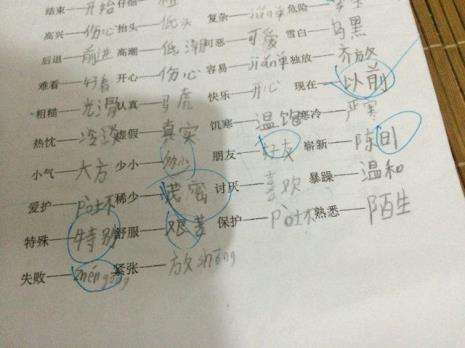 结束——开始 仔细——粗 复杂——jiǎn单 危险——
高兴——伤心 抬头——低头 可恶——可爱 雪白——乌黑
后退——前进 高潮——低潮 容易——jiǎn单 独放——齐放
难看——好看 开心——伤心 快乐——开心 现在——以前
粗糙——光滑 认真——马虎 饥寒——温饱 寒冷——严寒
热忱——冷漠 虚假——真实 朋友——好友 崭新——陈旧
小气——大方 少小——幼小 讨厌——喜欢 暴躁——温和
爱护——Pò坏 稀少——茂密 保护——Pò坏 熟悉——陌生
特殊——特别 舒服——艰苦
失败—— 紧张——放